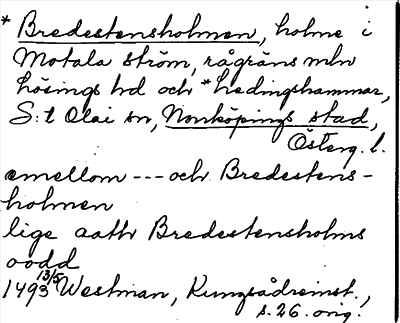 * Bredestensholmen, holme i
Motala ström, rågräns mln
hösings hd och * hedingshammar,
S:t Olai sn, Norrköpings stad,
Österg. l.
emellom --- och Bredestens-
holmen
lige aath Bredestensholms
oodd
1493 13/5 Westman, Kungsådreinst.,
s. 26. orig.